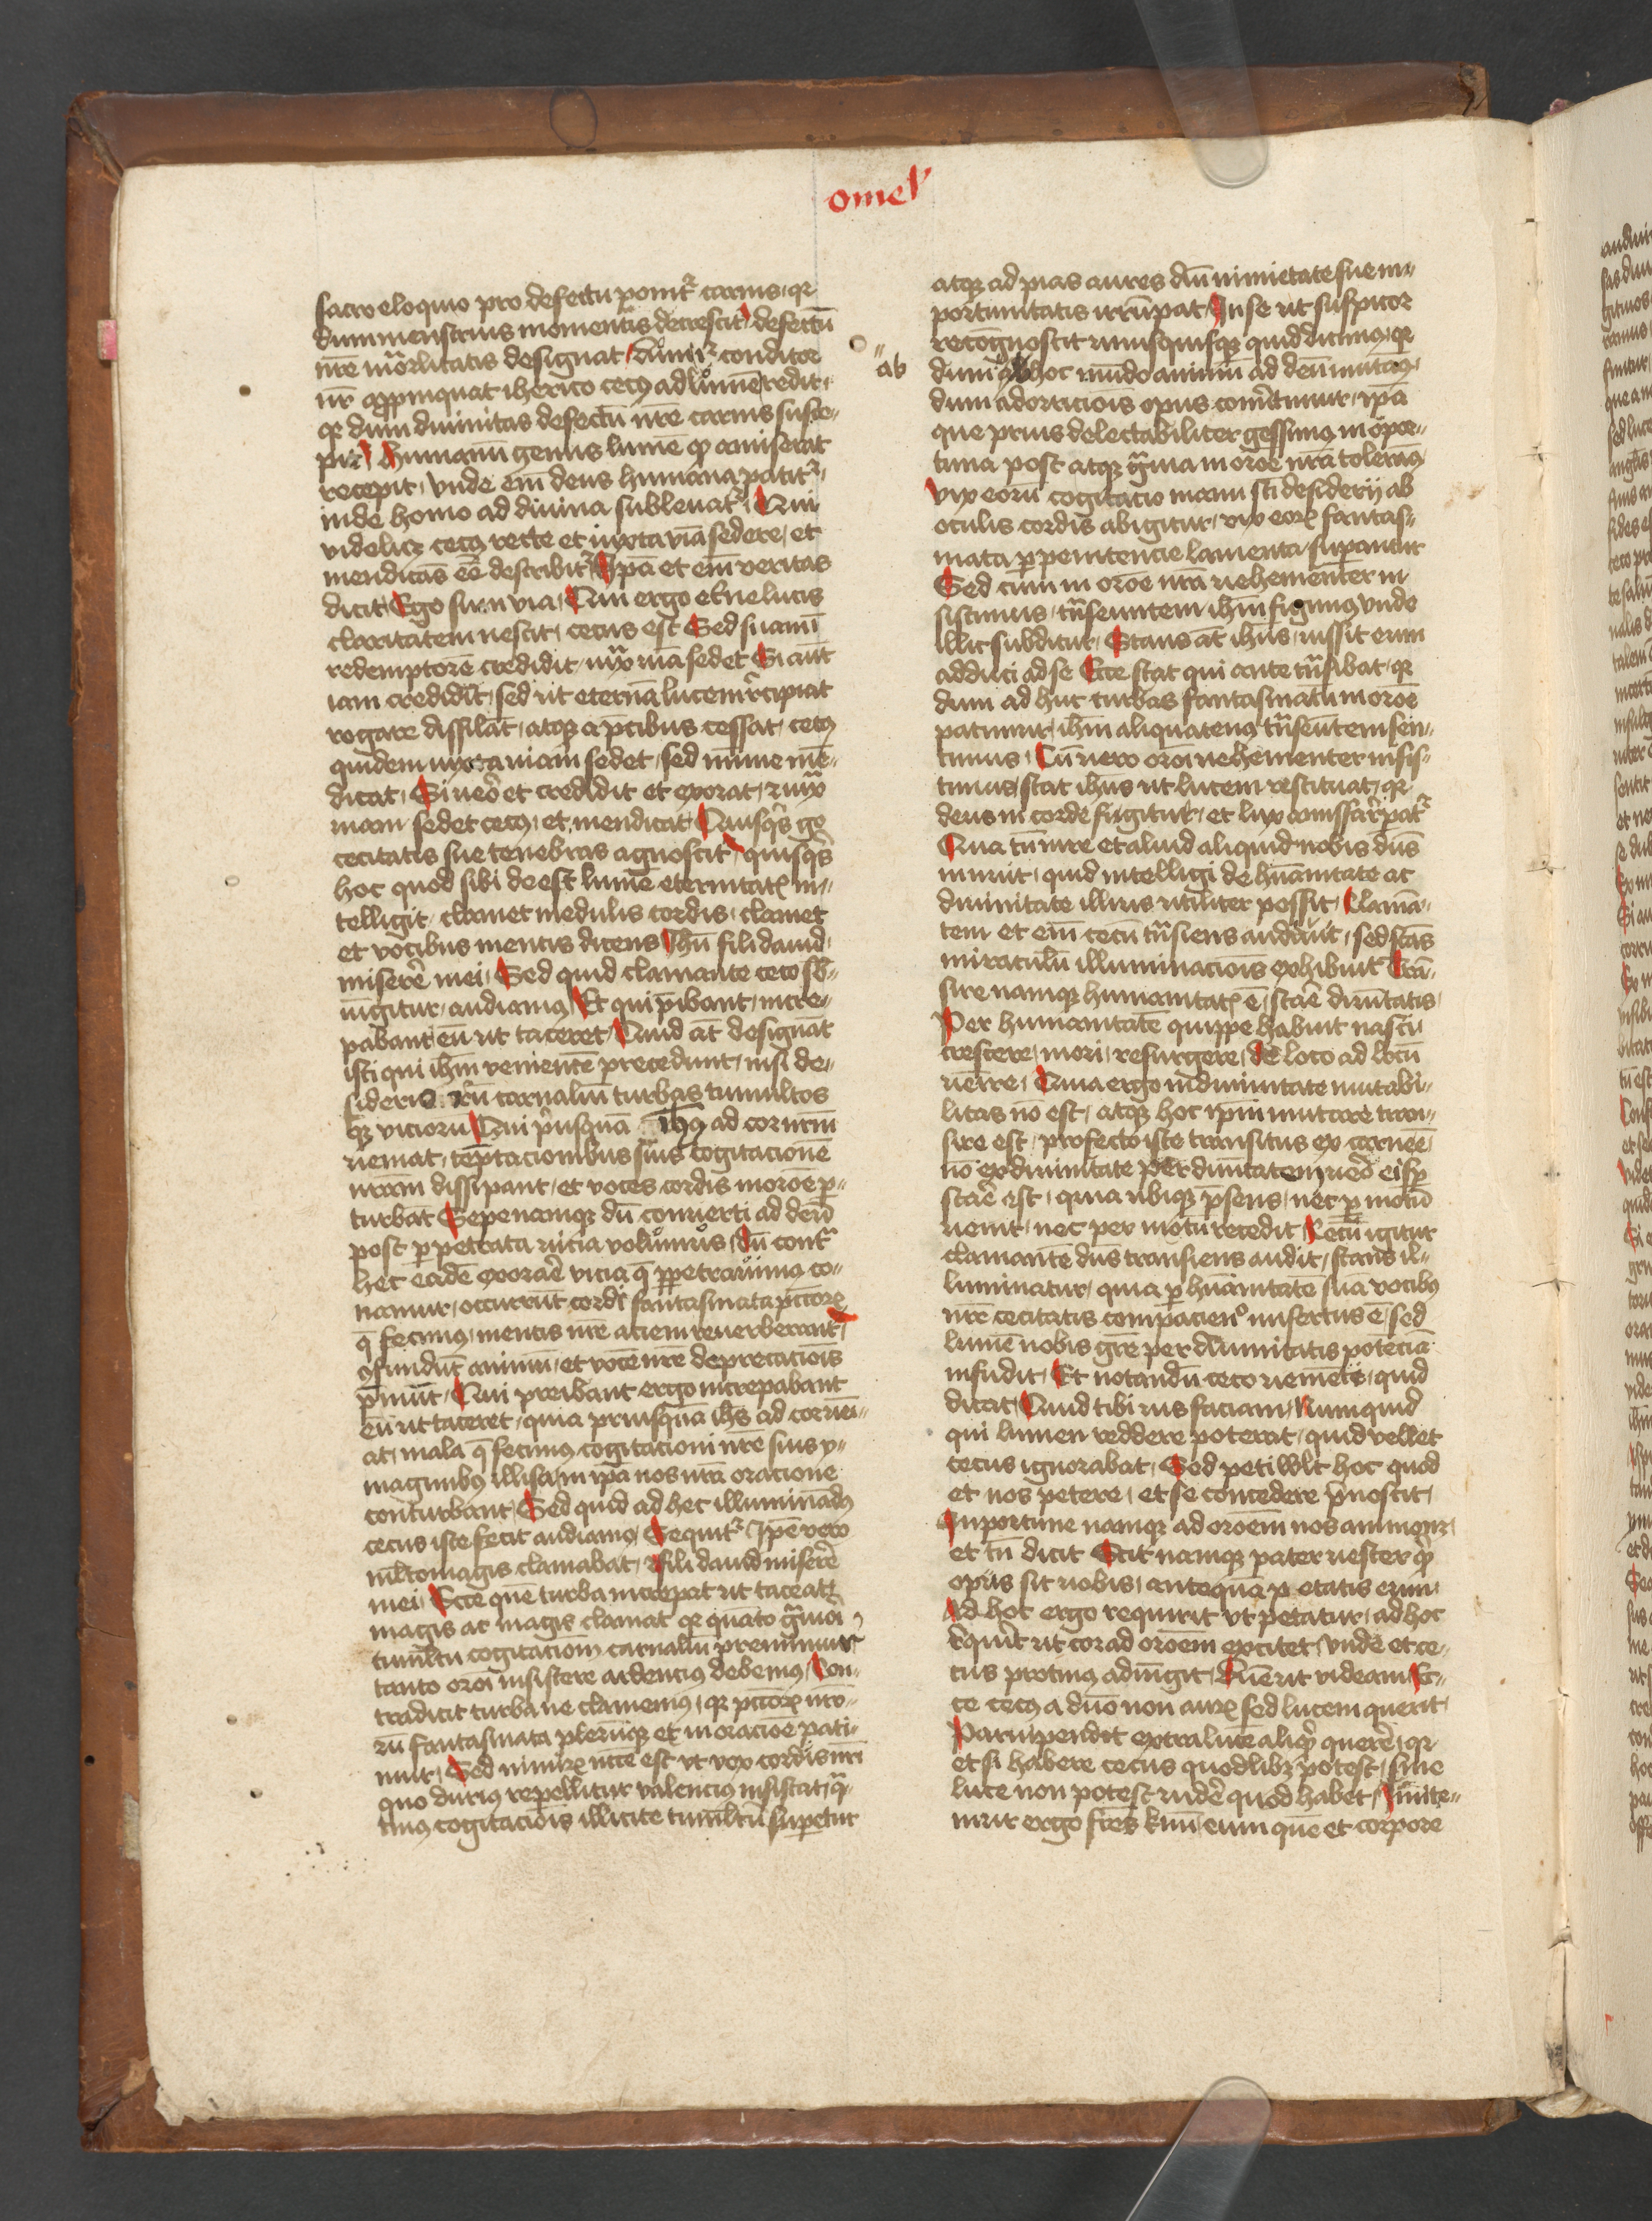 omel'
sacro eloquio pro defectu ponit᷑ carnis, qr
dum menstruis momentis decrescit, defectū
nr̄e mortalitatis designat, dū igit᷑ conditor
nr̄ appropinquat iherico cecꝯ ad lumē redit,
qr dum diuinitas defectū nr̄e carnis susce-
pit, humanū genus lumē qd amiserat
recepit, vnde em̄ deus humana patit᷑,
inde homo ad diuina subleuat᷑, Qui
videlicꝫ cecꝯ recte et iuxta viā sedere, et
mendicās eē describit᷑, Ipā et em̄ veritas
dicit, Ego sum via, Qui ergo et̄ne lucis
claritatem nescit, cecus est, Sed si iam ī
redemptorē credidit, iuxᵃ viā sedet, Si aūt
iam credidit, sed ut eternā lucem rͥcipiat
rogare dissilāt, atqꝫ a p̄cibus cessat, cecꝯ
quidem iuxta viam sedet, sed minime mē-
dicat, Si ueͦ et credidit et exorat, ⁊ iuxᵃ
uiam sedet cecꝯ, et mendicat, Quisqͥs gͦ
cecitatis sue tenebras agnoscit, quisqͥs
hoc quod sibi deest lumē eternitatꝭ in-
telligit, clamet medulis cordis, clamet
et vocibus mentis dicens, Ihū fili dauid,
miserēre mei, Sed quid clamante ceco sb-
iūgitur, audiamꝯ, Et qui p̄ibant, incre-
pabant eū ut taceret, Quid āt designāt
isti qui ihm̄ venientē precedunt, nisi de-
sideriorū carnaliū turbas tumultos
qꝫ vicioru, Qui p̄usquā ihꝯ ad cor nr̄m
veniat, tēptacionibus suis cogitacionē
nr̄am dissipant, et voces cordis in oroē ꝑ-
turbāt, Sepe namqꝫ dū conuerti ad deū
post perpetrata vicia volumus, dū contᵃ
hec eadē exorarē vicia q̄ ꝑpetrauimꝯ co-
namur, occurrūt cordi fantasmata pcc̄orꝝ
q̄ fecimꝯ, mentis nr̄e aciem reuerberant,
ꝯfundūt animū, et vocē nr̄e deprecacōis
p̄mūt, Qui preibant ergo increpabant
eū ut taceret, quia priusquā ihs̄ ad cor ueni-
at, mala q̄ fecimꝯ cogitacioni nr̄e suis y-
maginibꝯ illisa in ipā nos nr̄a oracione
conturbant, Sed quid ad hec illuminādꝯ
cecus iste fecit audiamꝯ, Sequit᷑ Ipē vero
ml̄to magis clamabat, fili dauid miserēre
mei, Ecce quē turba increpat ut taceat,
magis ac magis clamat, qr quāto gᵃuiori
tumultu cogitacionū carnaliū premimur
tanto oroī insistere ardencius debemꝯ, Con-
tradicit turba ne clamemꝯ, qr pcc̄orꝝ nr̄o-
rū fantasmata plerūqꝫ et in oracioē pati-
mur, Sed nimirꝝ ncc̄e est ut vox cordis nr̄i
quo durius repellitur valencius insistat, qᵃ-
tinꝯ cogitacionis illicite tumultū superetur
ab
atqꝫ ad pias aures dn̄i nimietate sue in-
portunitatis irrūpat, In se ut suspicor
recognoscit unusquisqꝫ quid dicimꝯ, qr
dum hoc mūdo animū ad deū mutamꝯ,
dum ad oracionis opus conūtimur, ipā
que prius delectabiliter gessimꝯ inopor-
tuna post atqꝫ gᵃuia in oroē nr̄a tolerāmꝯ,
vix eorū cogitacio manu sc̄i desiderij ab
oculis cordis abigitur, vix eorꝝ fantas-
mata ꝑ penitencie lamenta supantur
Sed cum in oroē nr̄a uehementer in-
sistimus, tn̄seuntem ihm̄ figimꝯ, vnde
illic subditur, Stans āt ihūs, iussit eum
adduci ad se, Ecce stat qui ante tn̄sibat, qr
dum ad huc turbas fantasmatū in oroē
patimur, ihm̄ aliquatenꝯ tn̄seūtem sen-
timus, Cū vero oroī uehementer insis-
timus, stat ihūs ut lucem restituat, qr
deus in corde figitur, et lux amissa rͥpat᷑
Qua in re et aliud aliquid nobis dn̄s
innuit, quid intelligi de hūanitate ac
diuinitate illius utiliter possit, Clamā-
tem et em̄ cecū tn̄siens audiuit, sed stās
miraculū illuminacionis exhibuit, Trā-
sire namqꝫ humanitatꝭ ē, starē diuītatis,
Per humanitatē quippe habuit nasci,
crescere, mori, resurgere, de loco ad locū
uenire, Quia ergo in diuinitate mutabi-
litas nō est, atqꝫ hoc ipm̄ mutare tran-
sire est, profecto iste transitus ex carne ē,
nō ex diuinitate, per diuītatem ueͦ ei sꝑ
starē est, quia ubiqꝫ p̄sens, nec ꝑ motū
uenit, nec per motū recedit, Cecū igitur
clamantē dn̄s transiens audit, stans il-
luminatur, quia ꝑ hūanitatē suā vocibꝯ
nr̄e cecitatis compaciendo misertus ē, sed
lumē nobis grē per diuinitatis potēciā
infudit, Et notandū ceco uenienti, quid
dicat, Quid tibi uis faciam, Numquid
qui lumen reddere poterat, quid vellet
cecus ignorabat, Sed peti vult hoc quod
et nos petere, et se concedere p̄noscit,
Inportune namqꝫ ad oroēm nos ammonꝫ,
et tn̄ dicit, Scit namqꝫ pater uester qͥd
opus sit uobis, antequā petatis eum,
Ad hoc ergo requirit ut petatur, ad hoc
requirit ut cor ad oroēm excitet, vnde et ce-
cus protinꝯ adiūgit, Dn̄e ut videam, Ec-
ce cecꝯ a dn̄o non aurꝝ sed lucem querit,
Paruipendit extra lucē aliqͥd querere, qr
et si habere cecus quodlibꝫ potest, sine
luce non potest videre quod habet, Imite-
mur ergo frēs kmi eum quē et corpore